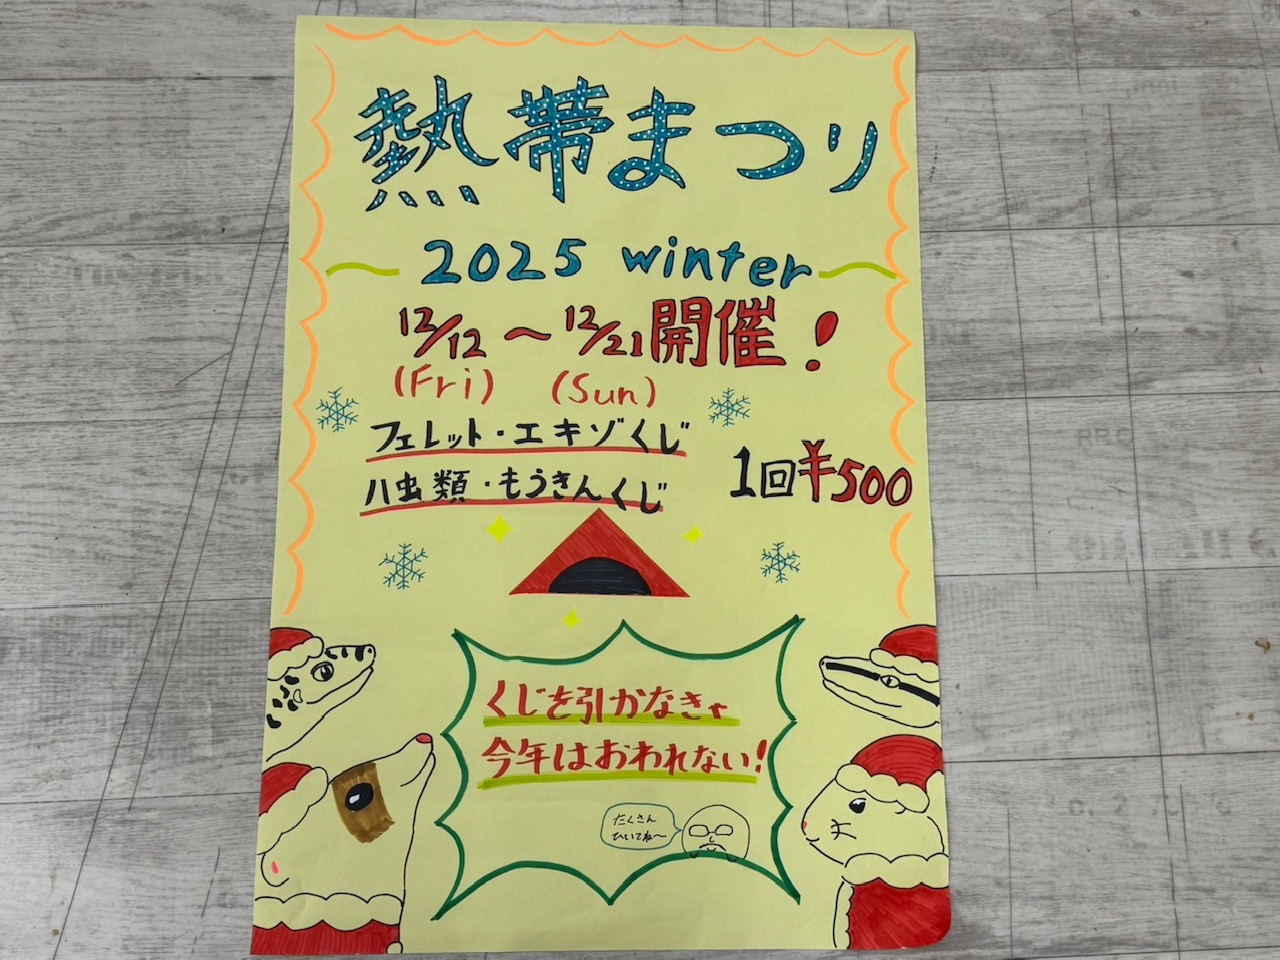 熱帯まつり
2025 winter
12/12 〜 12/21 開催!
(Fri) (Sun)
フェレット・エキゾくじ
ハ虫類・もうきんくじ
1回¥500
くじを引かなきゃ
今年はおわれない!
たくさん
ひいてね〜